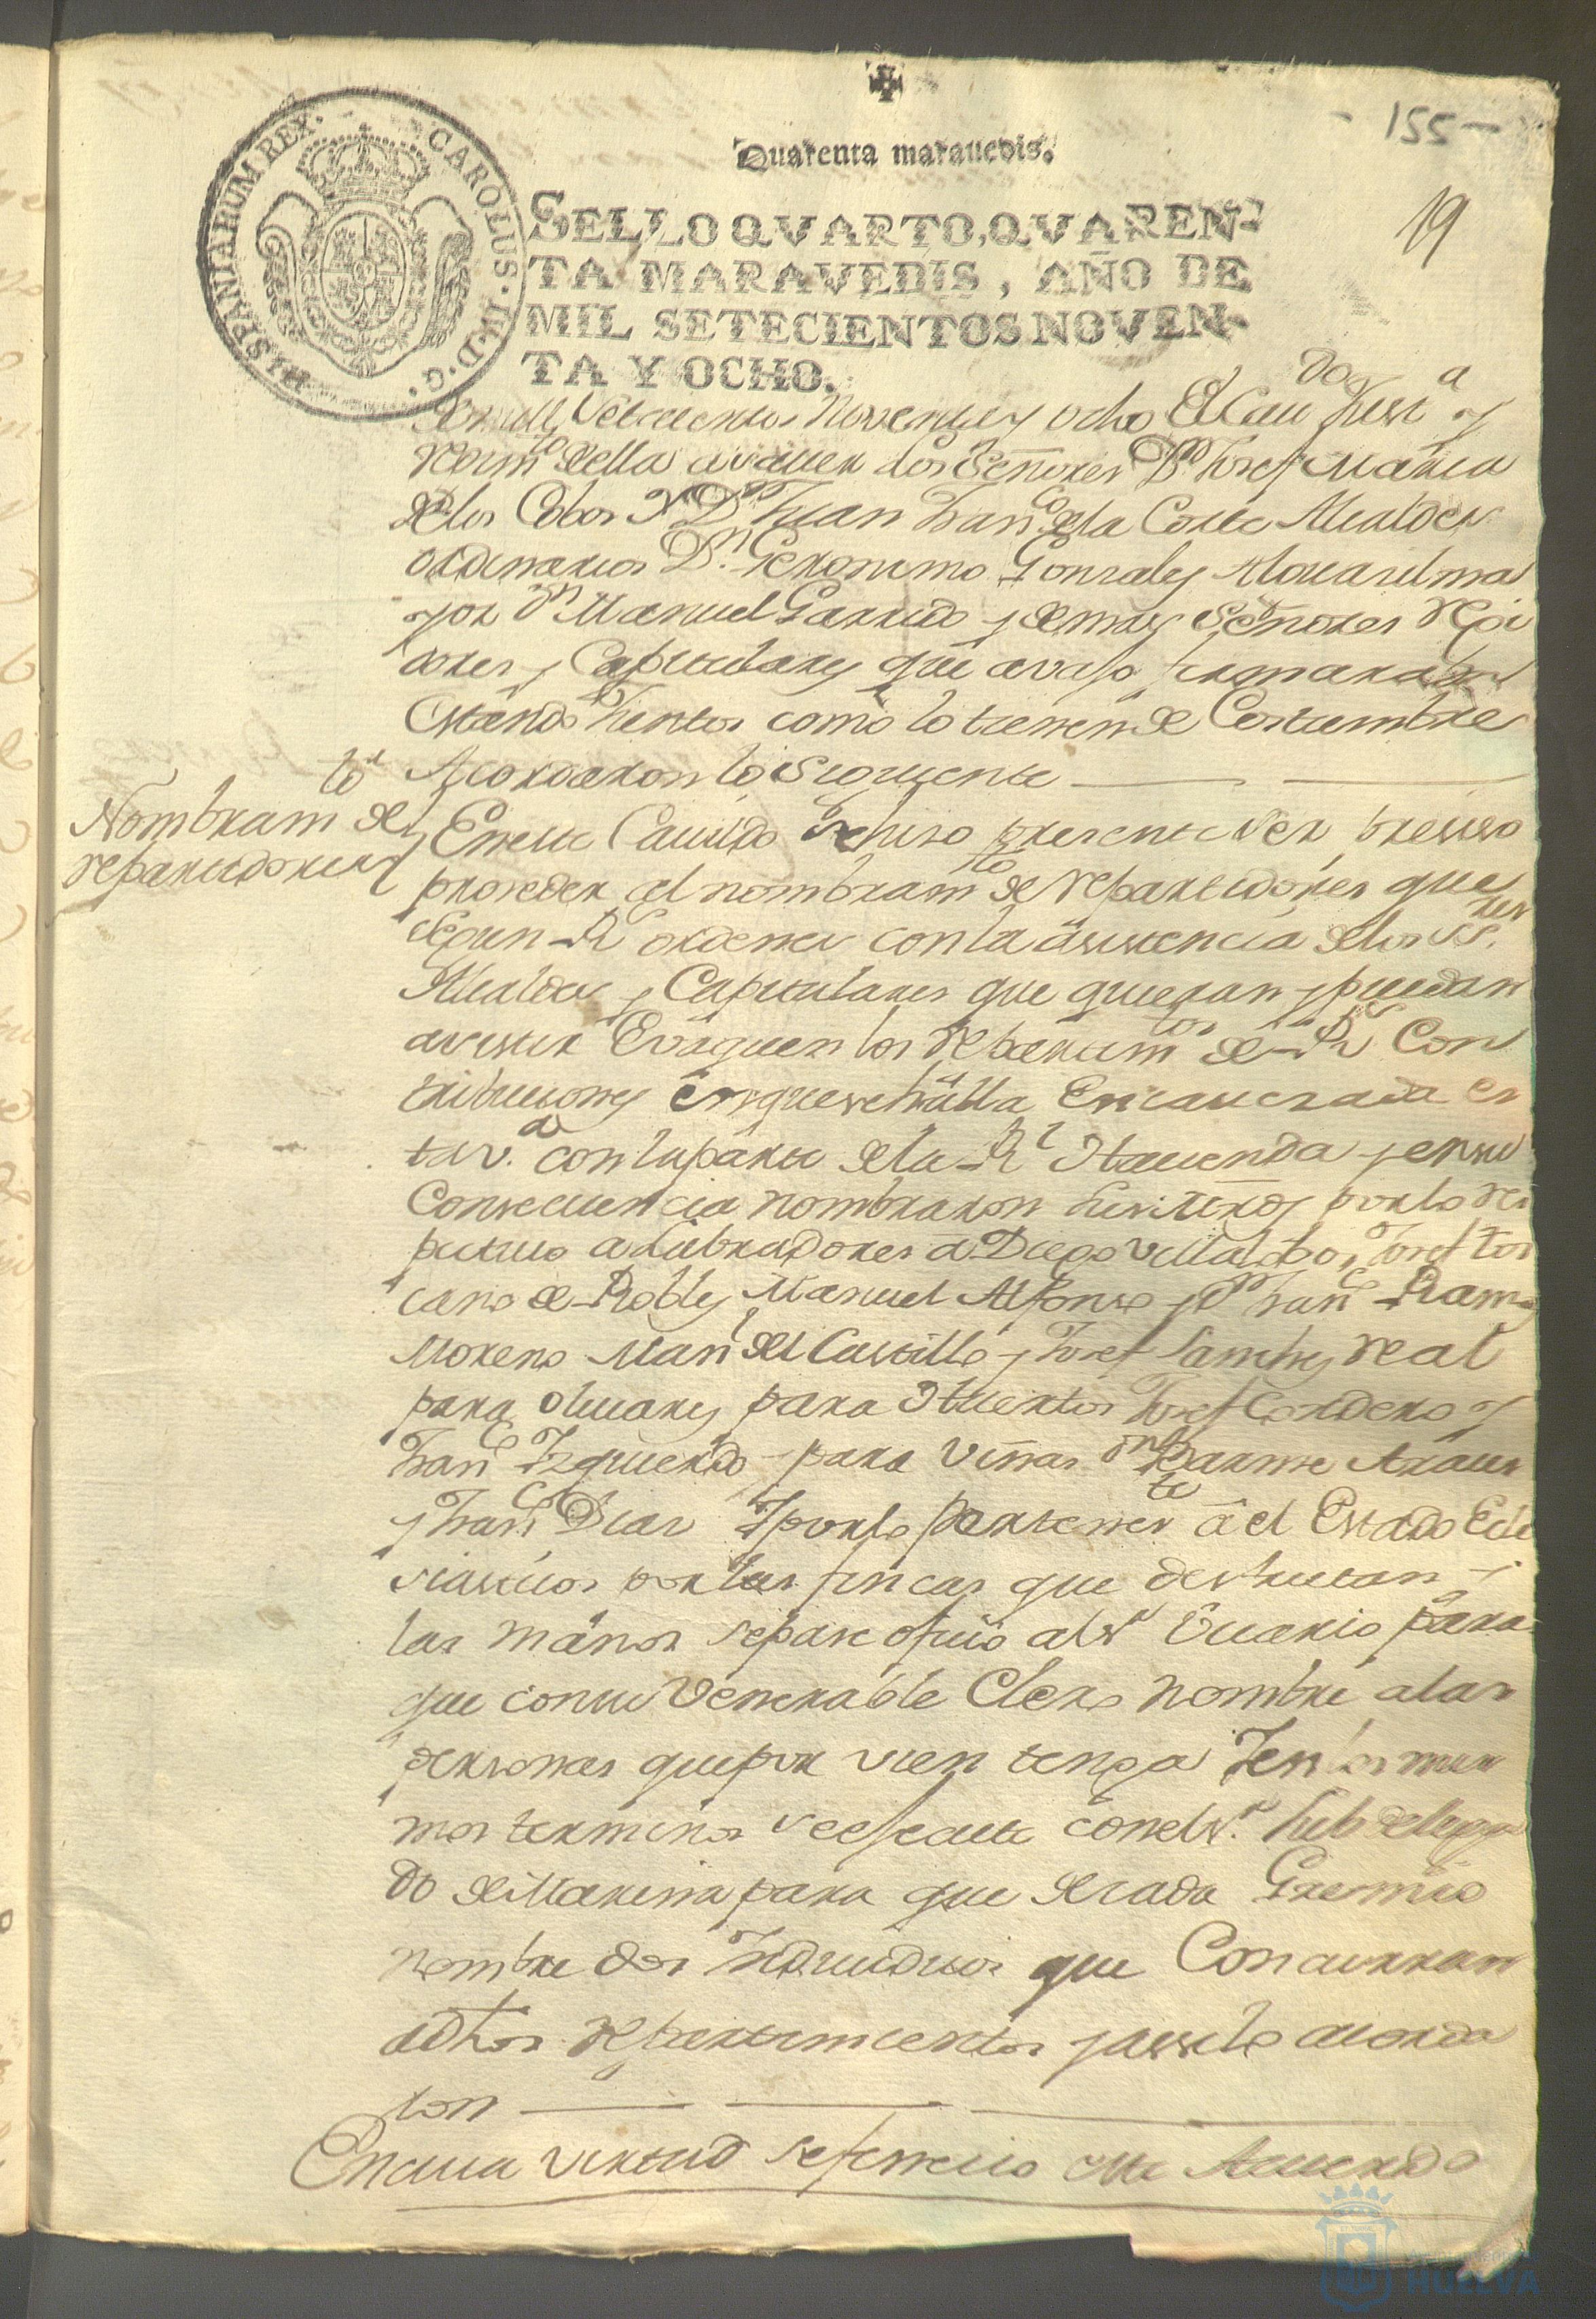 - 155 -
19
Quarenta marauedis.
CAROLUS. IV. D. G. HISPANIARUM REX.
SELLO QVARTO, QVAREN-
TA MARAVEDIS, AÑO DE
MIL SETECIENTOS NOVEN-
TA Y OCHO.
de mill Setecientos Noventa y ocho El Caudo Justa y
Rexmto de ella a vauer los Señores Dn Josef Maria
de los Cobos Y Dn Juan Franco de la Corte Alcaldes
ordinarios Dn Geronimo Gonzales Alguasil ma
yor Dn Manuel Garrido y demas Señores Regi
dores y Capitulares que avajo firmaran
Estando Juntos como lo tienen de Costumbre
Acordaron lo Siguiente
Nombramto de
repartidores
En este Cauildo se hiso presente ser presiso
proseder al nombramto de repartidores que
segun Rs ordenes con la asistencia de los SSres
Alcaldes y Capitulares que quieran y puedan
asistir Evaquen los repartimtos de Rs Con
tribusiones en que se halla Encauesada es
ta va con la parte de la Rl Hacienda y en su
Consecuencia nombraron Sus mrds por lo res
pectivo a Labradores a Diego Villalobos, Josef Tos
cano de Robles Manuel Alfonso y Dn Franco Ramos
Moreno Manl del Castillo y Josef Sanches real
para oliuares para Huertos Josef Cordero y
Franco Izquierdo para viñas Dn Parme Araus
y Franco Dias Y por lo perteneste a el Estado Ecle
siasticos por las fincas que desfrutan
las manos se pase ofisio al Sr Vicario para
que con su Venerable Clero nombre a las
personas que por vien tenga Y en los mis
mos terminos se efecute con el Sr. Subdelega
do de Marina para que de cada Gremio
nombre dos Indiuiduos que Concurran
a dhos repartimientos y assi lo acorda
ron
En cuia virtud se fenecio este Acuerdo
HUELVA